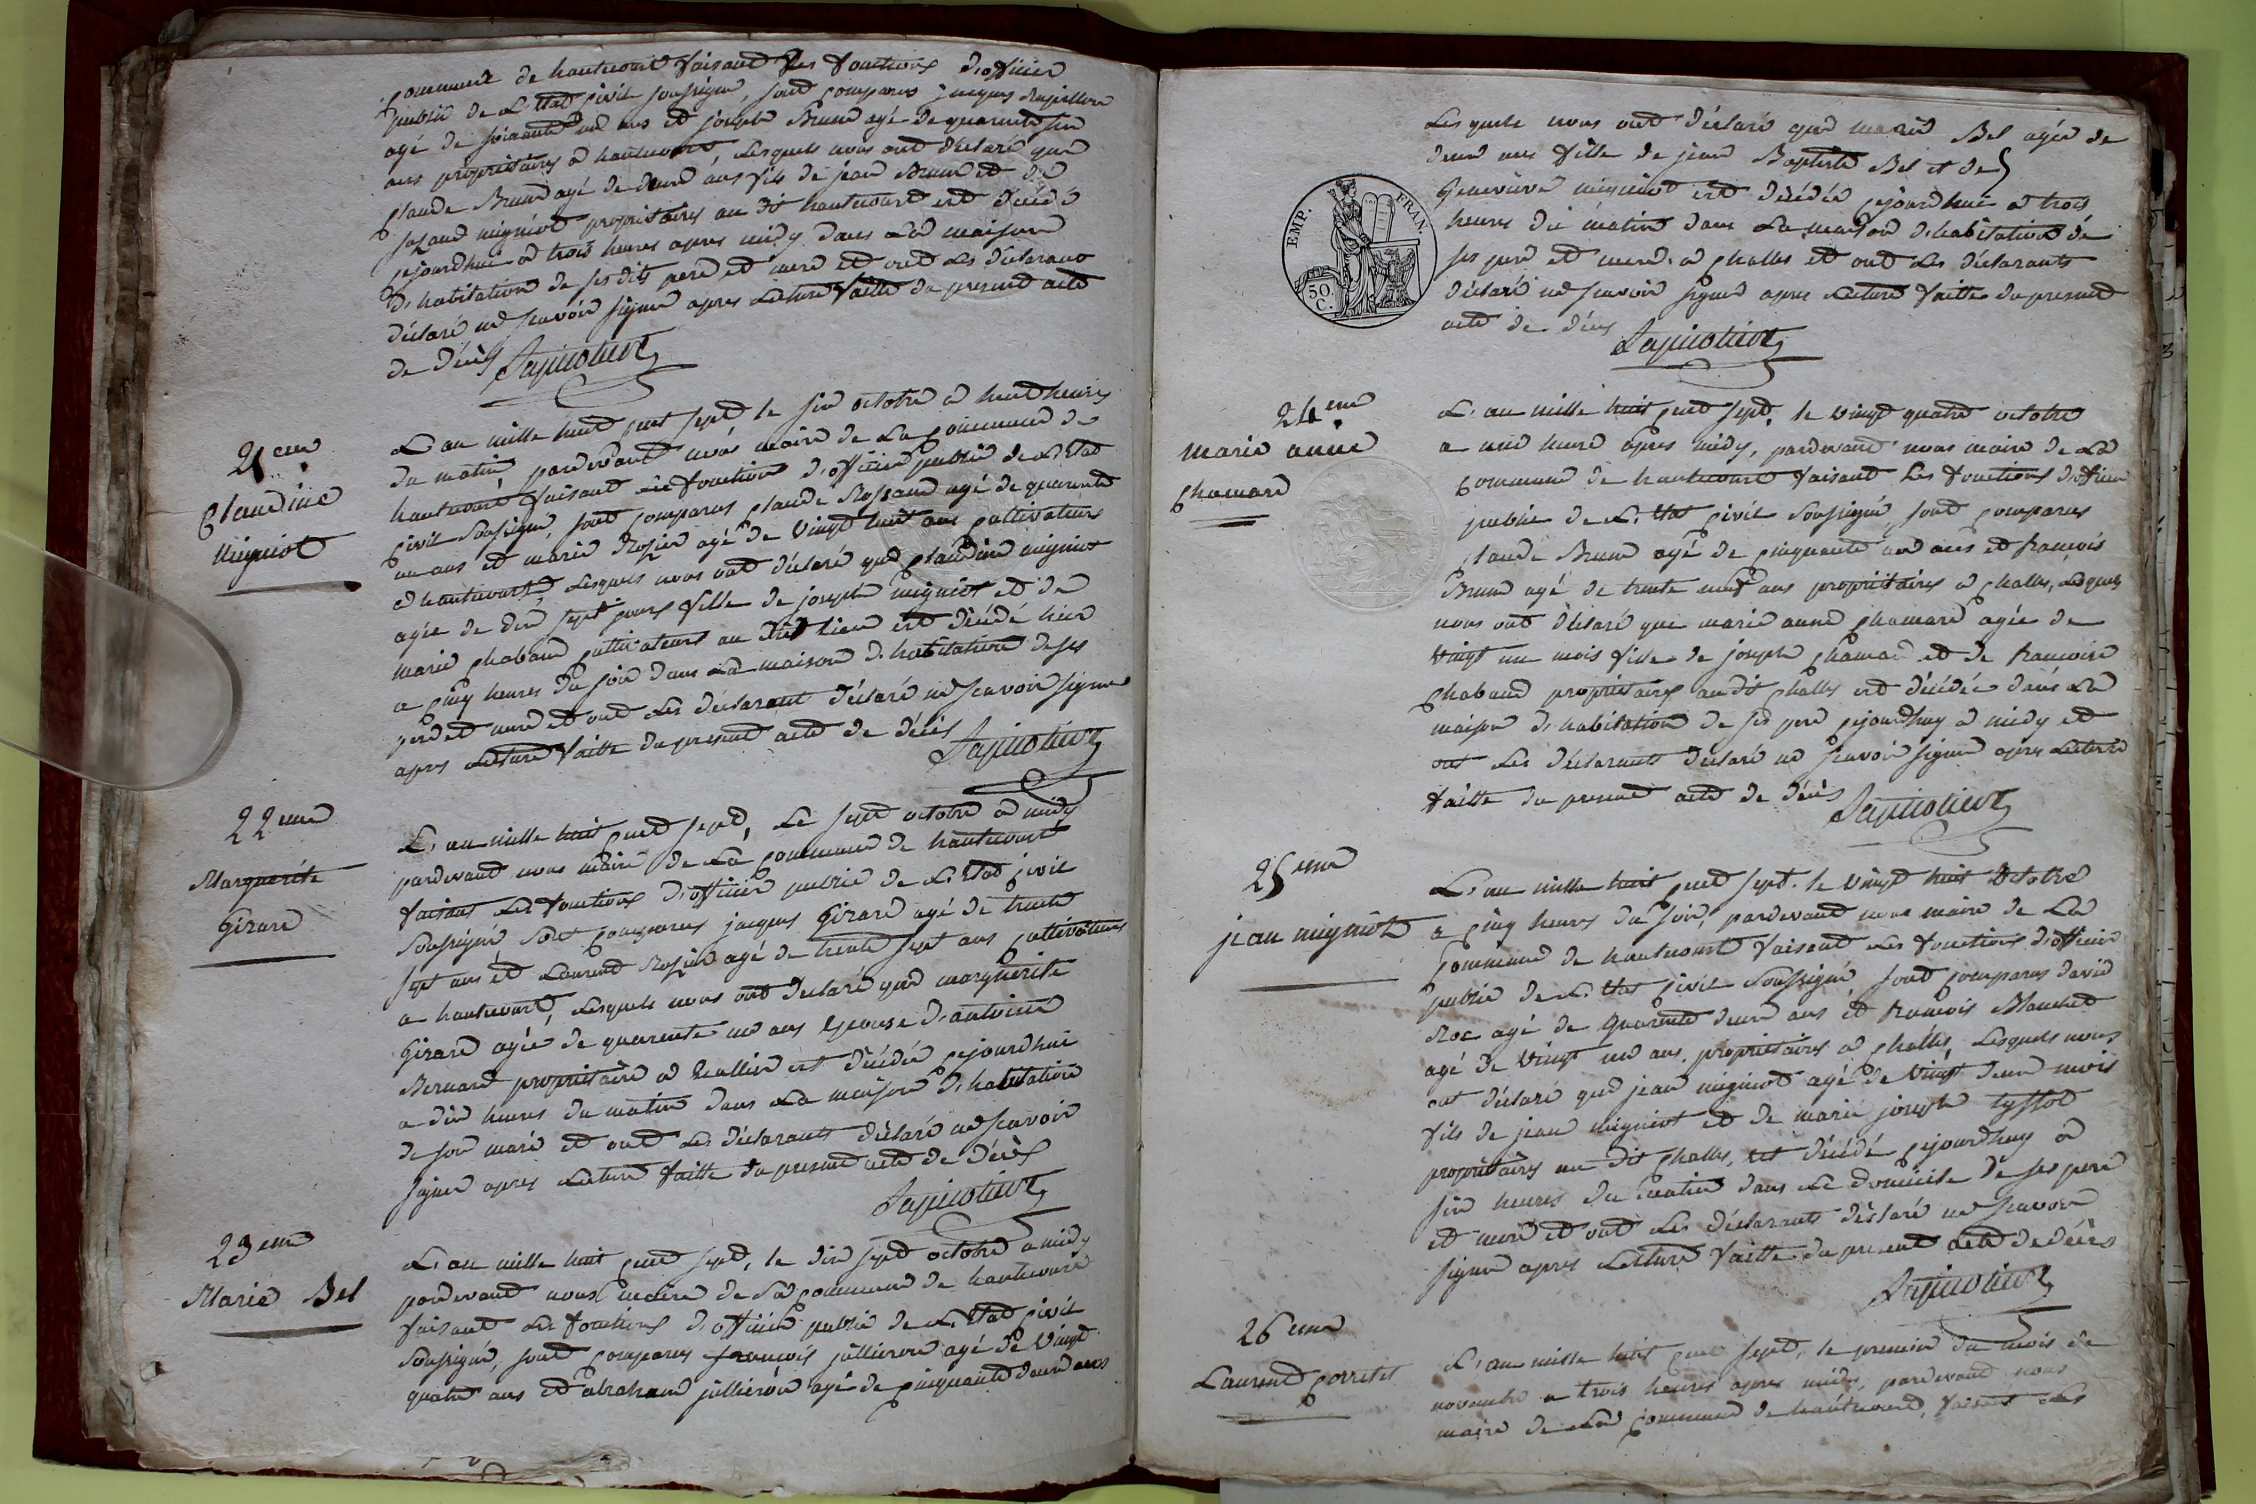 commune de hautecourt faisant les fonctions d'officier
public de L'Etat civil soussigné, sont comparus jacques
agé de soixante un ans et joseph Brun agé de quarante six
ans propriétaires a hautecourt, Lesquels nous ont déclaré que
claude Brun agé de deux ans fils de jean Brun et de
migniot propriétaires au dit hautecourt est décédé
cejourdhui a trois heures apres midy dans La maison
d'habitation de ses dits pere et mere et ont Les déclarants
déclaré ne scavoir signer apres Lecture faitte du present acte
de décès
21 eme
Claudine
Migniot
L'an mille huit cent sept le six octobre a huit heures
du matin pardevant nous maire de La commune de
hautecourt faisant Les fonctions d'officier public de L'Etat
civil Soussigné, sont comparus claude Rossand agé de quarante
un ans et marie Rozier agé de vingt huit ans cultivateurs
a hautecourt, Lesquels nous ont déclaré que claudine migniot
agée de dix sept jours fille de joseph migniot et de
marie chaband cultivateurs au dit lieu est décédé hier
a cinq heures du soir dans La maison d'habitation de ses
pere et mere et ont Les déclarant déclaré ne scavoir signer
apres Lecture faitte du present acte de décès
22 eme
Marguerite
Girard
L'an mille huit cent sept, Le sept octobre a midy
pardevant nous maire de La commune de hautecourt
faisant Les fonctions d'officier public de L'Etat civil
Soussigné sont comparus jacques Girard agé de trente
sept ans et Laurend Rozier agé de trente sept ans cultivateurs
a hautecourt, Lesquels nous ont déclaré que marguerite
Girard agée de quarente un ans epouse d'antoine
Bernard propriétaire a est décédée cejourdhui
a dix heures du matin dans La maison d'habitation
de son mari et ont Les déclarants déclaré ne scavoir
signer apres Lecture faitte du present acte de décès
23 eme
Marie Bel
L'an mille huit cent sept, le dix sept octobre a midy
pardevant nous maire de La commune de hautecourt
faisant Les fonctions d'officier public de L'Etat civil
Soussigné, sont comparus francois jullieron agé de vingt
quatre ans et abraham jullieron agé de cinquante deux ans
Lesquels nous ont déclaré que marie Bel agée de
deux ans fille de jean Baptiste Bel et de
Genevieve migniot est décédée cejourdhui a trois
heures du matin dans La maison d'habitation de
ses pere et mere a challes et ont Les déclarants
déclaré ne scavoir signer apres Lecture faitte du present
acte de décès
EMP. FRAN.
50
C.
24 eme
marie anne
chamard
L'an mille huit cent sept, le vingt quatre octobre
a une heure apres midy, pardevant nous maire de La
commune de hautecourt faisant Les fonctions d'officier
public de L'Etat civil Soussigné, sont comparus
claude Brun agé de cinquante un ans et francois
Brun agé de trente neuf ans propriétaires a challes, Lesquels
nous ont déclaré que marie anne chamard agée de
vingt un mois fille de joseph chamard et de francoise
chaband propriétaires audit challes est décédée dans La
maison d'habitation de ses pere cejourdhuy a midy et
ont Les déclarants déclaré ne scavoir signer apres Lecture
faitte du present acte de décès
25 eme
jean migniot
L'an mille huit cent sept, le vingt huit octobre
a cinq heures du soir, pardevant nous maire de La
commune de hautecourt faisant Les fonctions d'officier
public de L'Etat civil Soussigné, sont comparus david
Roc agé de quarente deux ans et francois Blanchet
agé de vingt un ans, propriétaires a challes Lesquels nous
ont déclaré que jean migniot agé de vingt deux mois
fils de jean migniot et de marie joseph tyssot
propriétaires au dit challes, est décédé cejourdhuy a
six heures du matin dans Le domicile de ses pere
et mere et ont Les déclarants déclaré ne scavoir
signer apres Lecture faitte du present acte de décès
26 eme
Laurend
L'an mille huit cent sept, le premier du mois de
novembre a trois heures apres midy, pardevant nous
maire de La commune de hautecourt, faisant Les